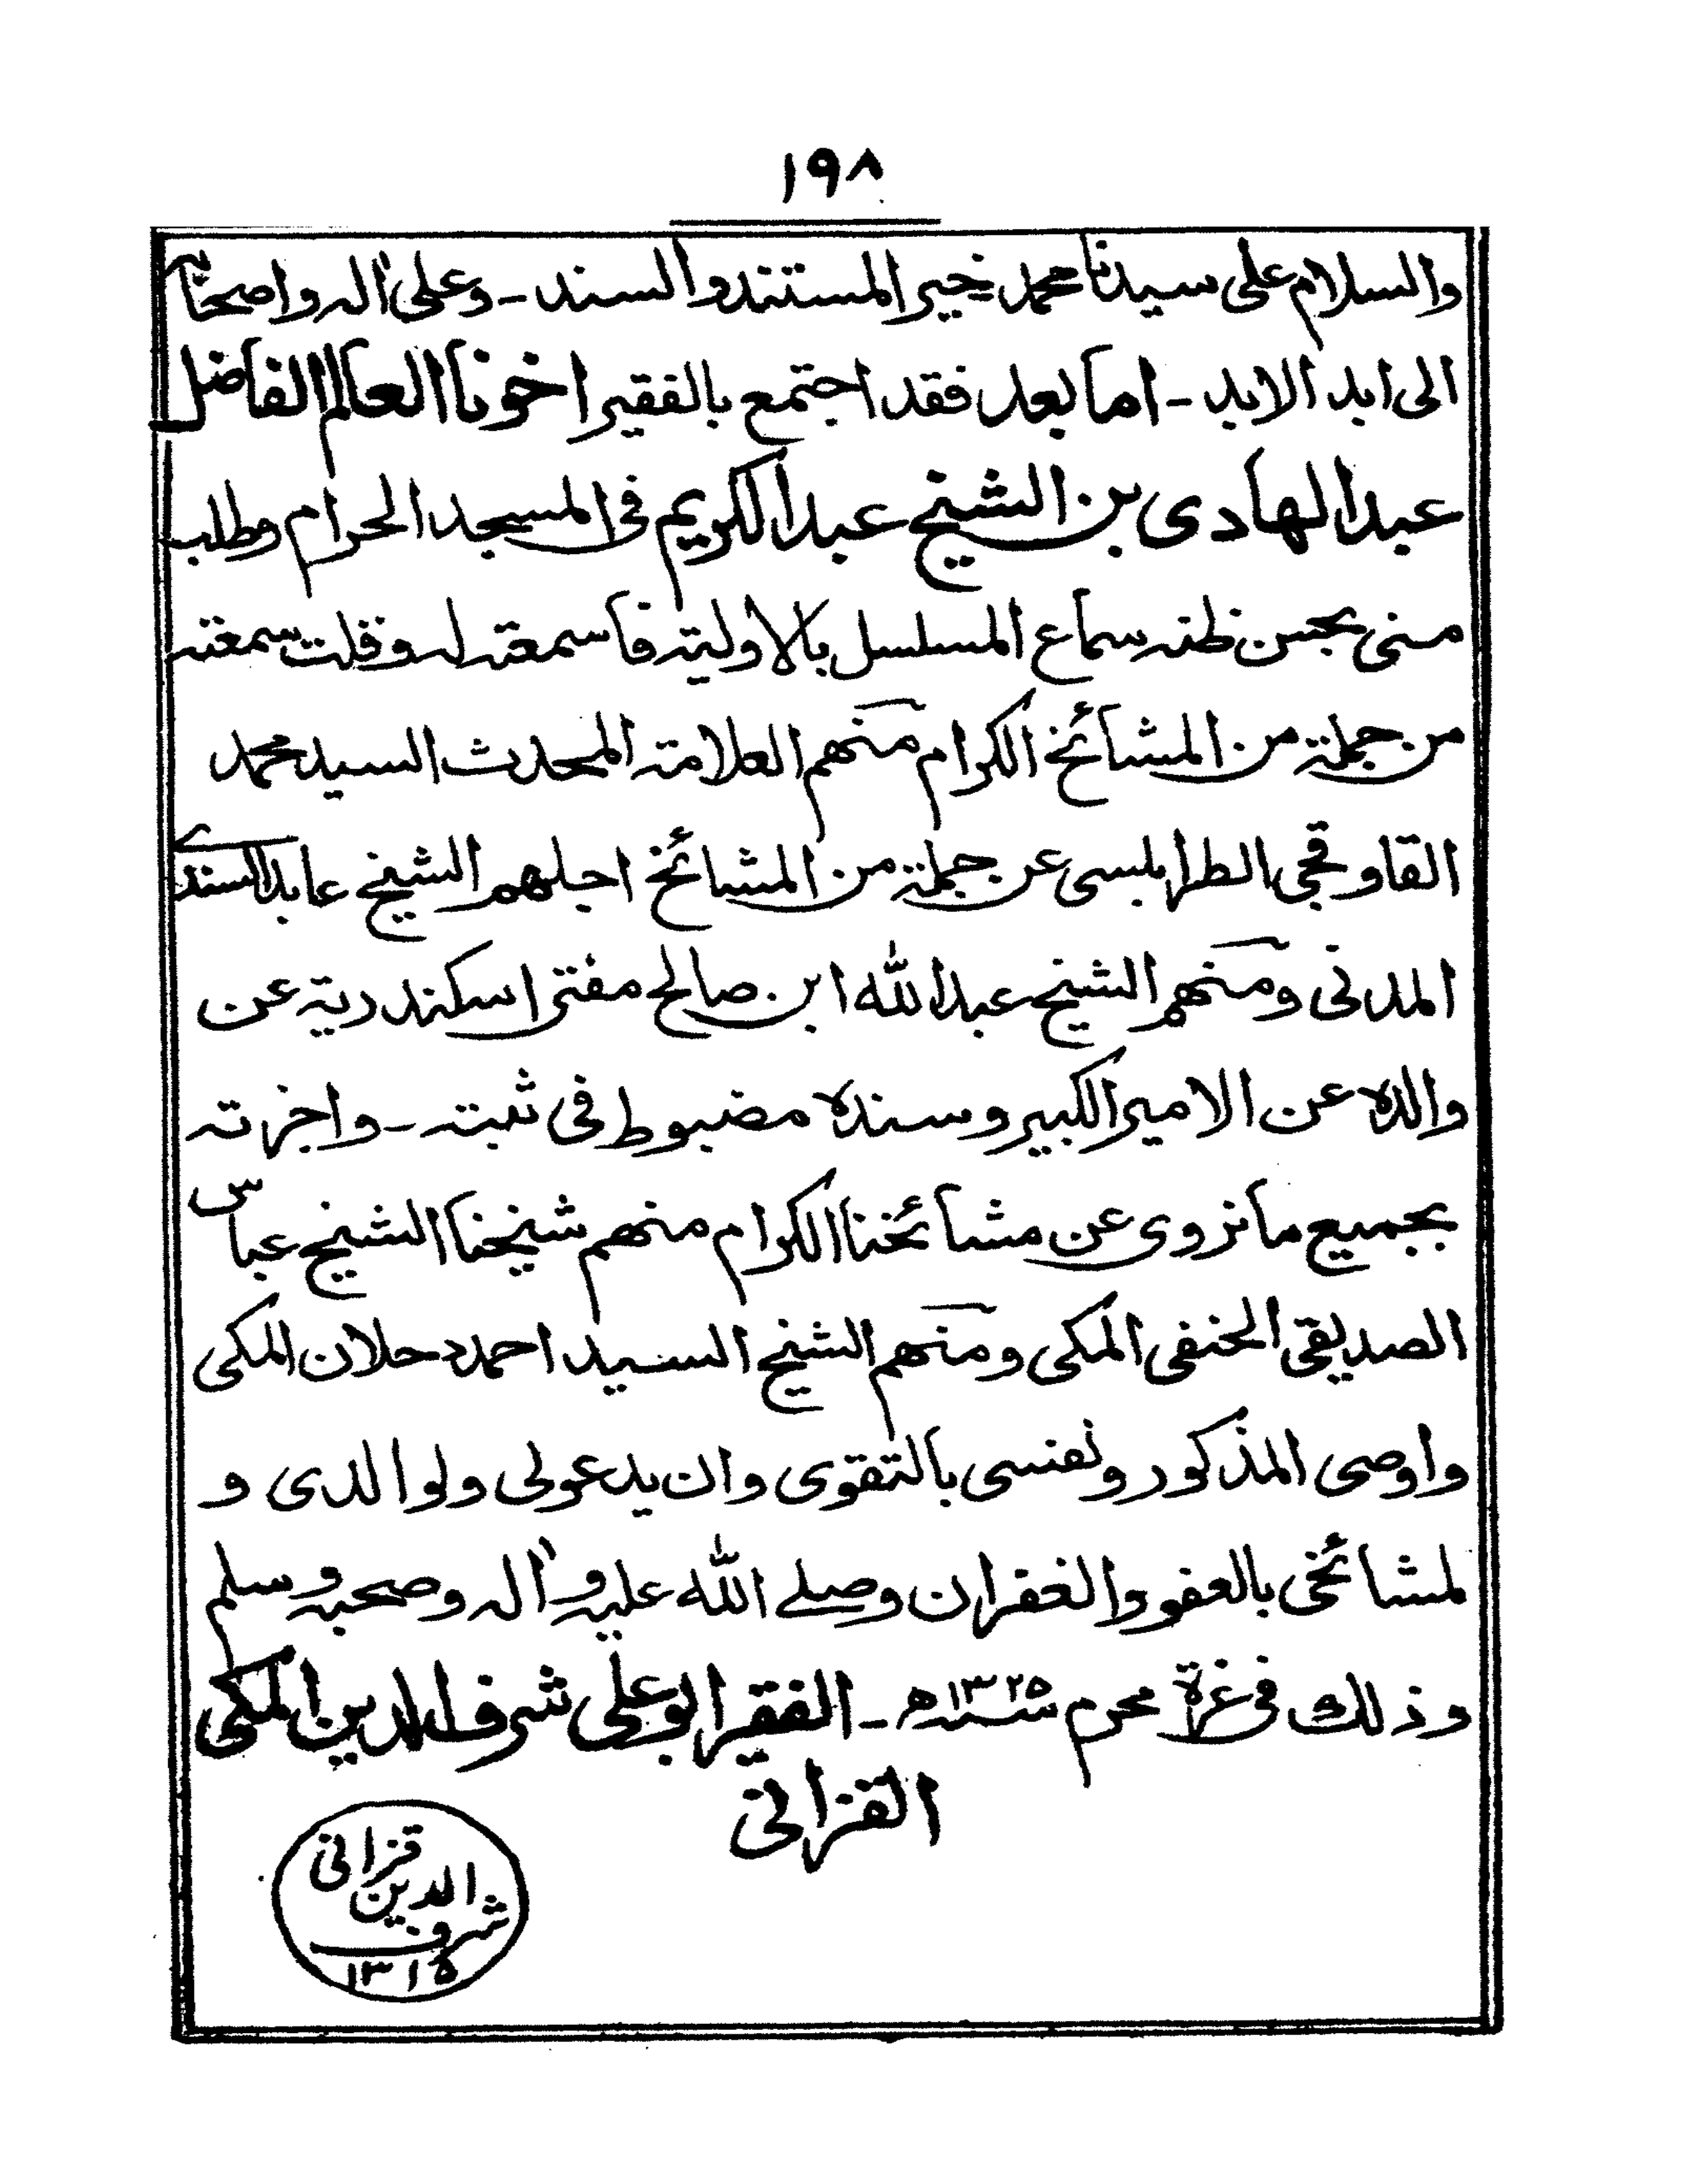 ١٩٨
والسلام على سيدنا محمد خير المستند والسند - وعلى اله واصحابه
الى ابد الابد - اما بعد فقد اجتمع بالفقير اخونا العالم الفاضل
عبد الهادى بن الشيخ عبد الكريم فى المسجد الحرام وطلب
منى بحسن ظنه سماع المسلسل بالاولية فاسمعته له وقلت سمعته
من جملة من المشائخ الكرام منهم العلامة المحدث السيد محمد
القاوقجى الطرابلسى عن جملة من المشائخ اجلهم الشيخ عابد السندى
المدنى ومنهم الشيخ عبد الله ابن صالح مفتى اسكندرية عن
والده عن الامير الكبير وسنده مضبوط فى ثبته - واجزته
بجميع ما نروى عن مشائخنا الكرام منهم شيخنا الشيخ عباس
الصديقى الحنفى المكى ومنهم الشيخ السيد احمد دحلان المكى
واوصى المذكور ونفسى بالتقوى وان يدعو لى ولوالدى و
لمشائخى بالعفو والغفران وصلے الله عليه واٰله وصحبه وسلم
وذلك فى غرة محرم سنه ١٣٢٥ه - الفقير ابو على شرف الدين المكى
القزانى
قزانى
الدين
شرف
١٣١٥